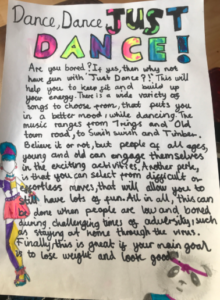 Dance, Dance JUST
DANCE!
Are you bored? If yes, then why not
have fun with 'Just Dance?!' This will
help you to keep fit and build up
your energy. There is a wide variety of
songs to choose from, that puts you
in a better mood, while dancing. The
music ranges from Things and 'Old
town road', to Swish swish and Timber.
Believe it or not, but people of all ages,
young and old can engage themselves
in the exciting activities. Another perk,
is that you can select from difficult or
effortless moves, that will allow you to
still have lots of fun. All in all, this can
be done when people are low and bored
during challenging times of adversity; such
as staying at home through the virus.
Finally, this is great if your main goal
is to lose weight and look good